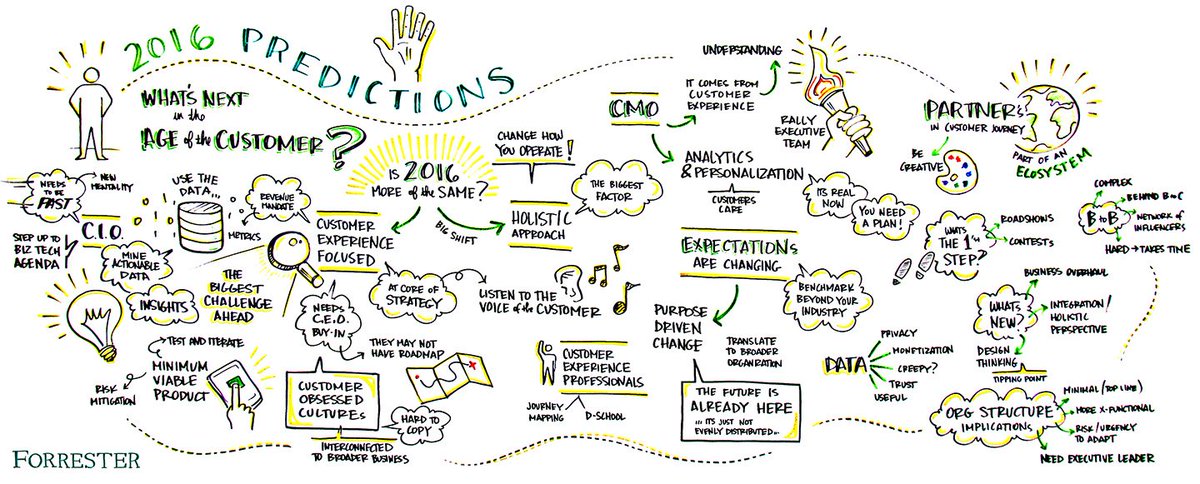 2016 PREDICTIONS
WHAT'S NEXT
in the
AGE of the CUSTOMER?
NEEDS
TO BE
FAST
NEW
MENTALITY
C.I.O.
STEP UP TO
BIZ TECH
AGENDA
USE THE
DATA...
METRICS
MINE
ACTIONABLE
DATA
INSIGHTS
THE
BIGGEST
CHALLENGE
AHEAD
TEST AND ITERATE
MINIMUM
VIABLE
PRODUCT
RISK
MITIGATION
FORRESTER
IS 2016
MORE of the SAME?
BIG SHIFT
REVENUE
MANDATE
CUSTOMER
EXPERIENCE
FOCUSED
AT CORE OF
STRATEGY
NEEDS
C.E.O.
BUY-IN
THEY MAY NOT
HAVE ROADMAP
CUSTOMER
OBSESSED
CULTURES
INTERCONNECTED
TO BROADER BUSINESS
HARD TO
COPY
CHANGE HOW
YOU OPERATE!
HOLISTIC
APPROACH
THE BIGGEST
FACTOR
LISTEN TO THE
VOICE of the CUSTOMER
CUSTOMER
EXPERIENCE
PROFESSIONALS
JOURNEY
MAPPING
D-SCHOOL
CMO
UNDERSTANDING
IT COMES FROM
CUSTOMER
EXPERIENCE
RALLY
EXECUTIVE
TEAM
ANALYTICS
& PERSONALIZATION
CUSTOMERS
CARE
ITS REAL
NOW
YOU NEED
A PLAN!
EXPECTATIONS
ARE CHANGING
BENCHMARK
BEYOND YOUR
INDUSTRY
PURPOSE
DRIVEN
CHANGE
TRANSLATE
TO BROADER
ORGANIZATION
THE FUTURE IS
ALREADY HERE
... ITS JUST NOT
EVENLY DISTRIBUTED...
DATA
PRIVACY
MONETIZATION
CREEPY?
TRUST
USEFUL
PARTNERS
IN CUSTOMER JOURNEY
PART OF AN
ECOSYSTEM
BE
CREATIVE
WHATS
THE 1ST
STEP?
ROADSHOWS
CONTESTS
B to B
COMPLEX
BEHIND B to C
NETWORK OF
INFLUENCERS
HARD → TAKES TIME
WHATS
NEW?
BUSINESS OVERHAUL
INTEGRATION/
HOLISTIC
PERSPECTIVE
DESIGN
THINKING
TIPPING POINT
ORG STRUCTURE
IMPLICATIONS
MINIMAL (TOP LINE)
MORE X-FUNCTIONAL
RISK/URGENCY
TO ADAPT
NEED EXECUTIVE LEADER